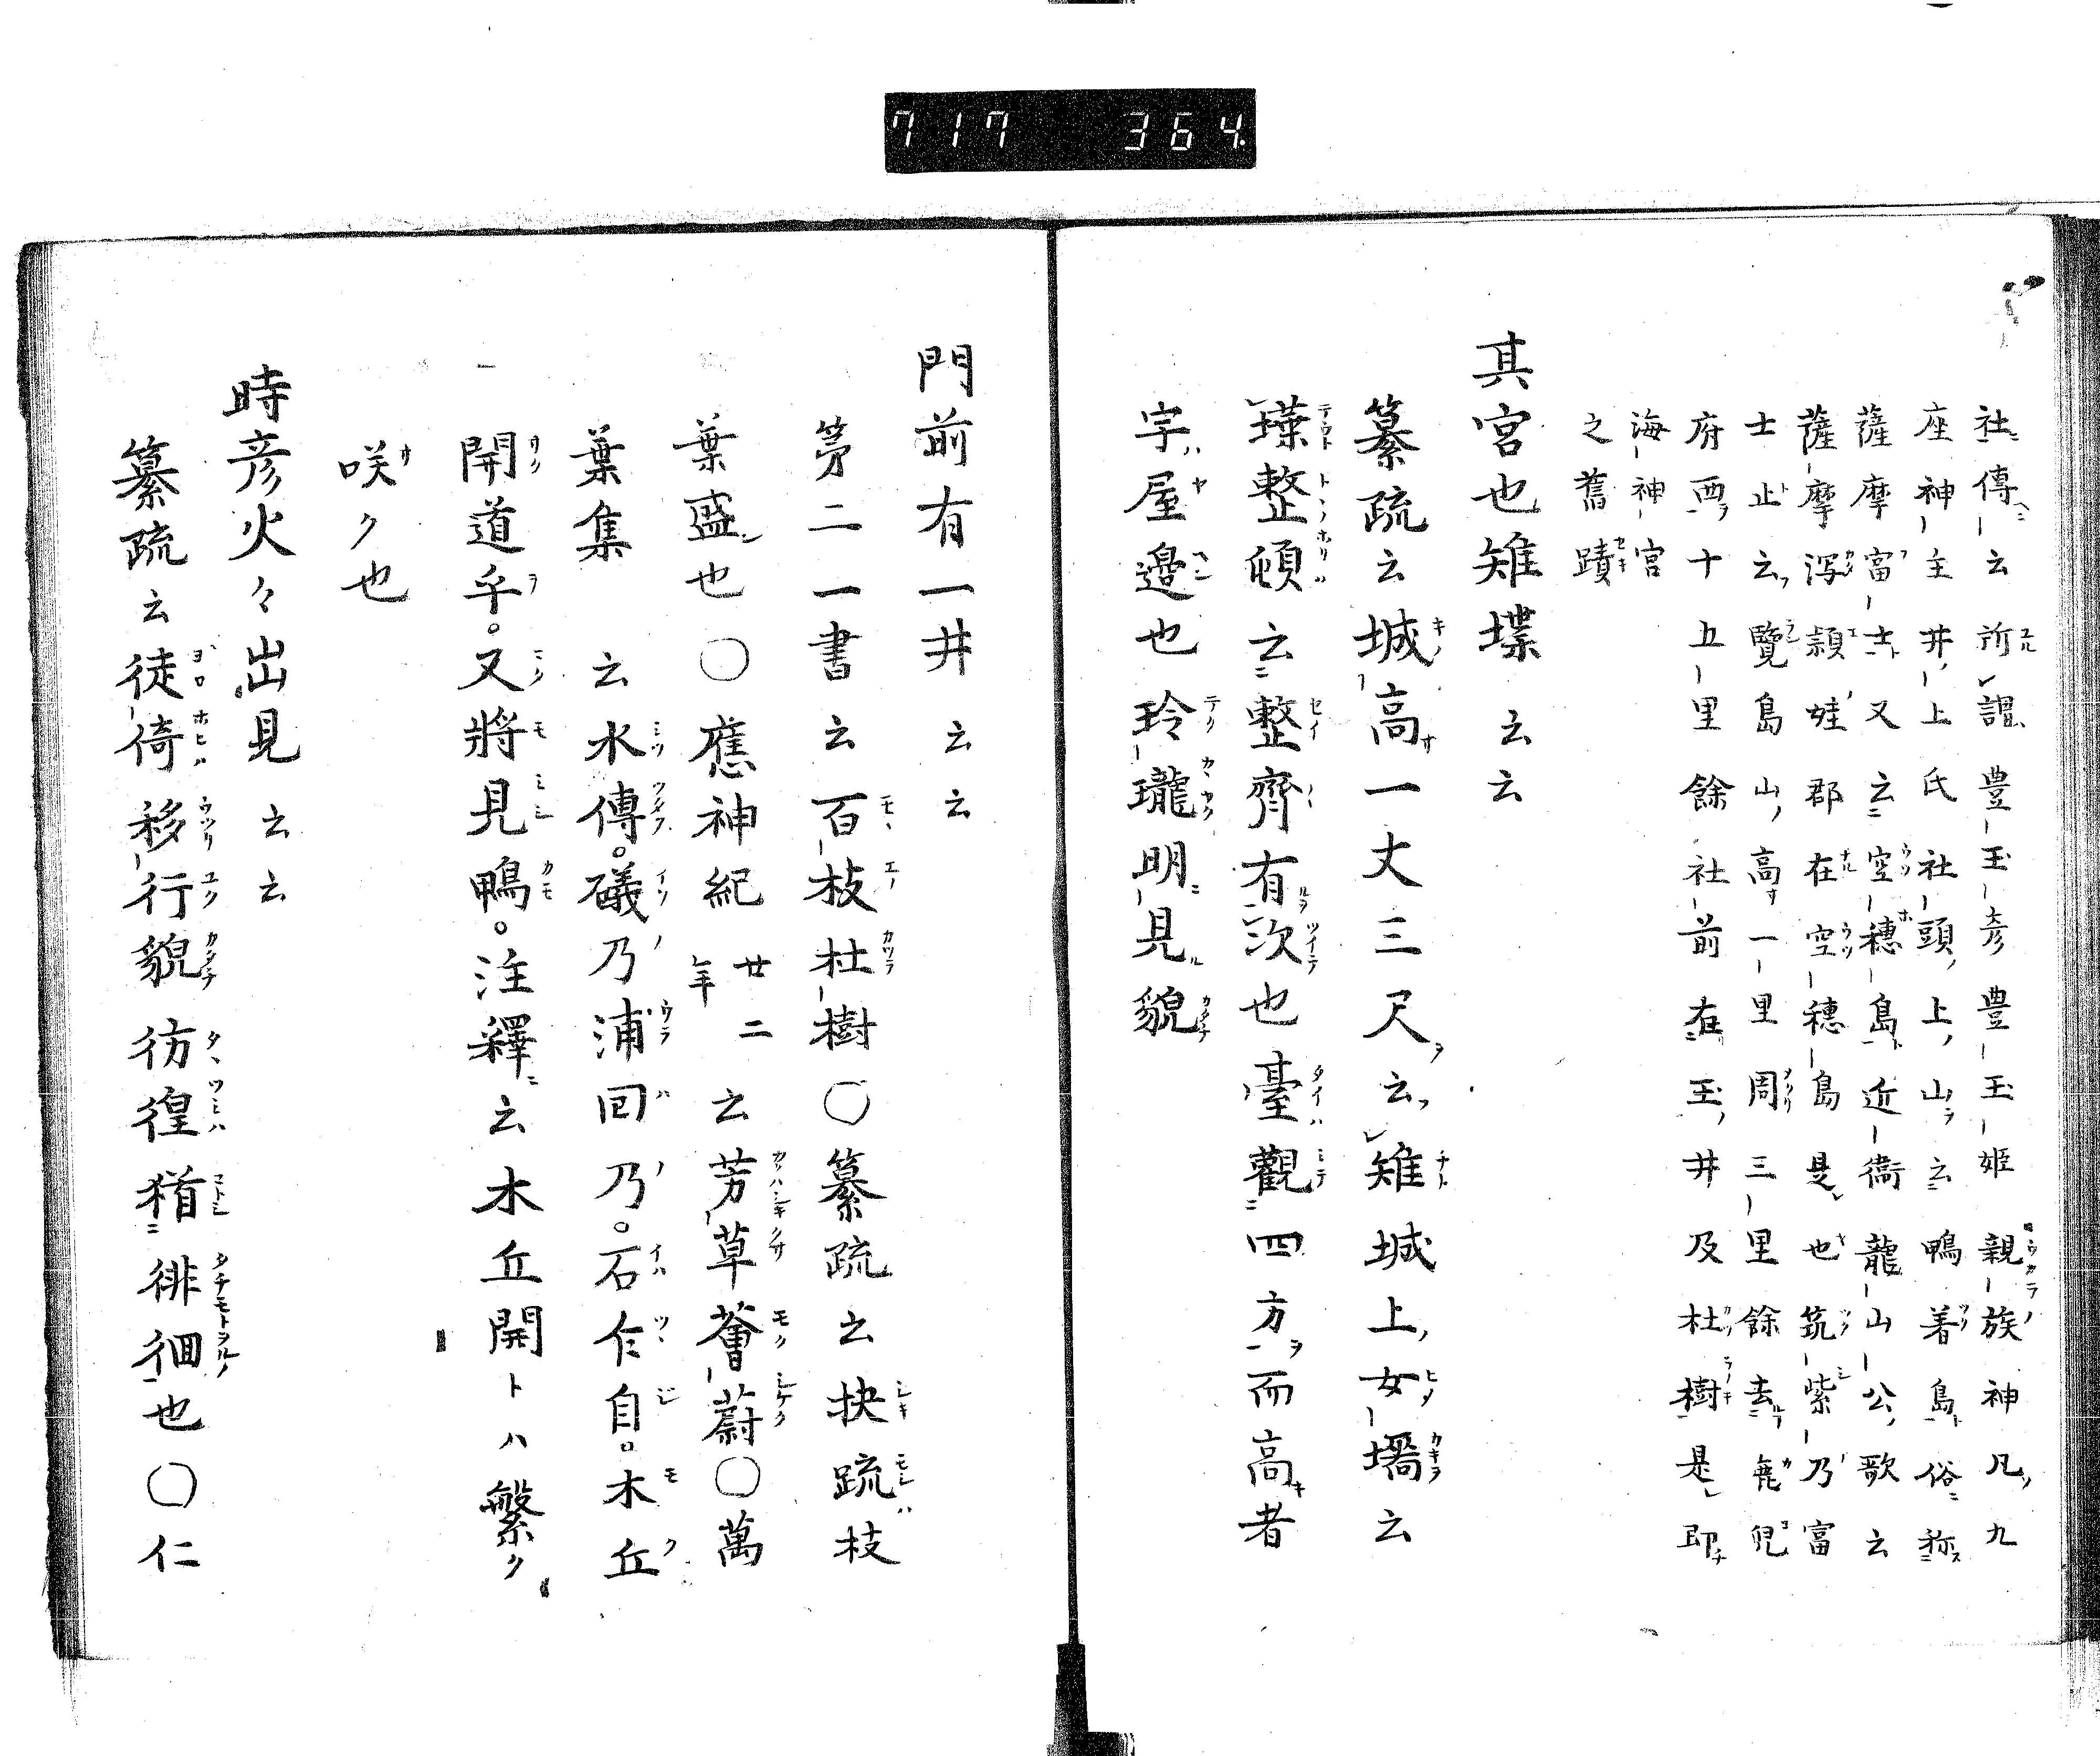 717 364
社傳云所謂豊玉彦豊玉姫親族神凡九
座神主井上氏社頭上山云鴨着島俗称
薩摩富士又云空穂島近衞龍山公歌云
薩摩泻頴娃郡在空穂島是也筑紫乃富
士止云覽島山高一里周三里餘去鹿児
府西十五里餘社前在玉井及杜樹是即
海神宮
之舊蹟
其宮也雉堞云云
纂疏云城高一丈三尺云雉城上女墻云
璞整頓云整齊有次也臺觀四方而高者
宇屋邉也玲瓏明見貌
門前有一井云云
第二一書云百枝杜樹〇纂疏云扶疏枝
葉盛也〇應神紀廿二年云芳草薈蔚〇萬
葉集 云水傳。礒乃浦回乃。石乍自。木丘
開道乎。又將見鴨。注釋云木丘開トハ繁ク
咲ク也
時彦火々出見云云
纂疏云徒倚移行貌彷徨猶徘徊也〇仁